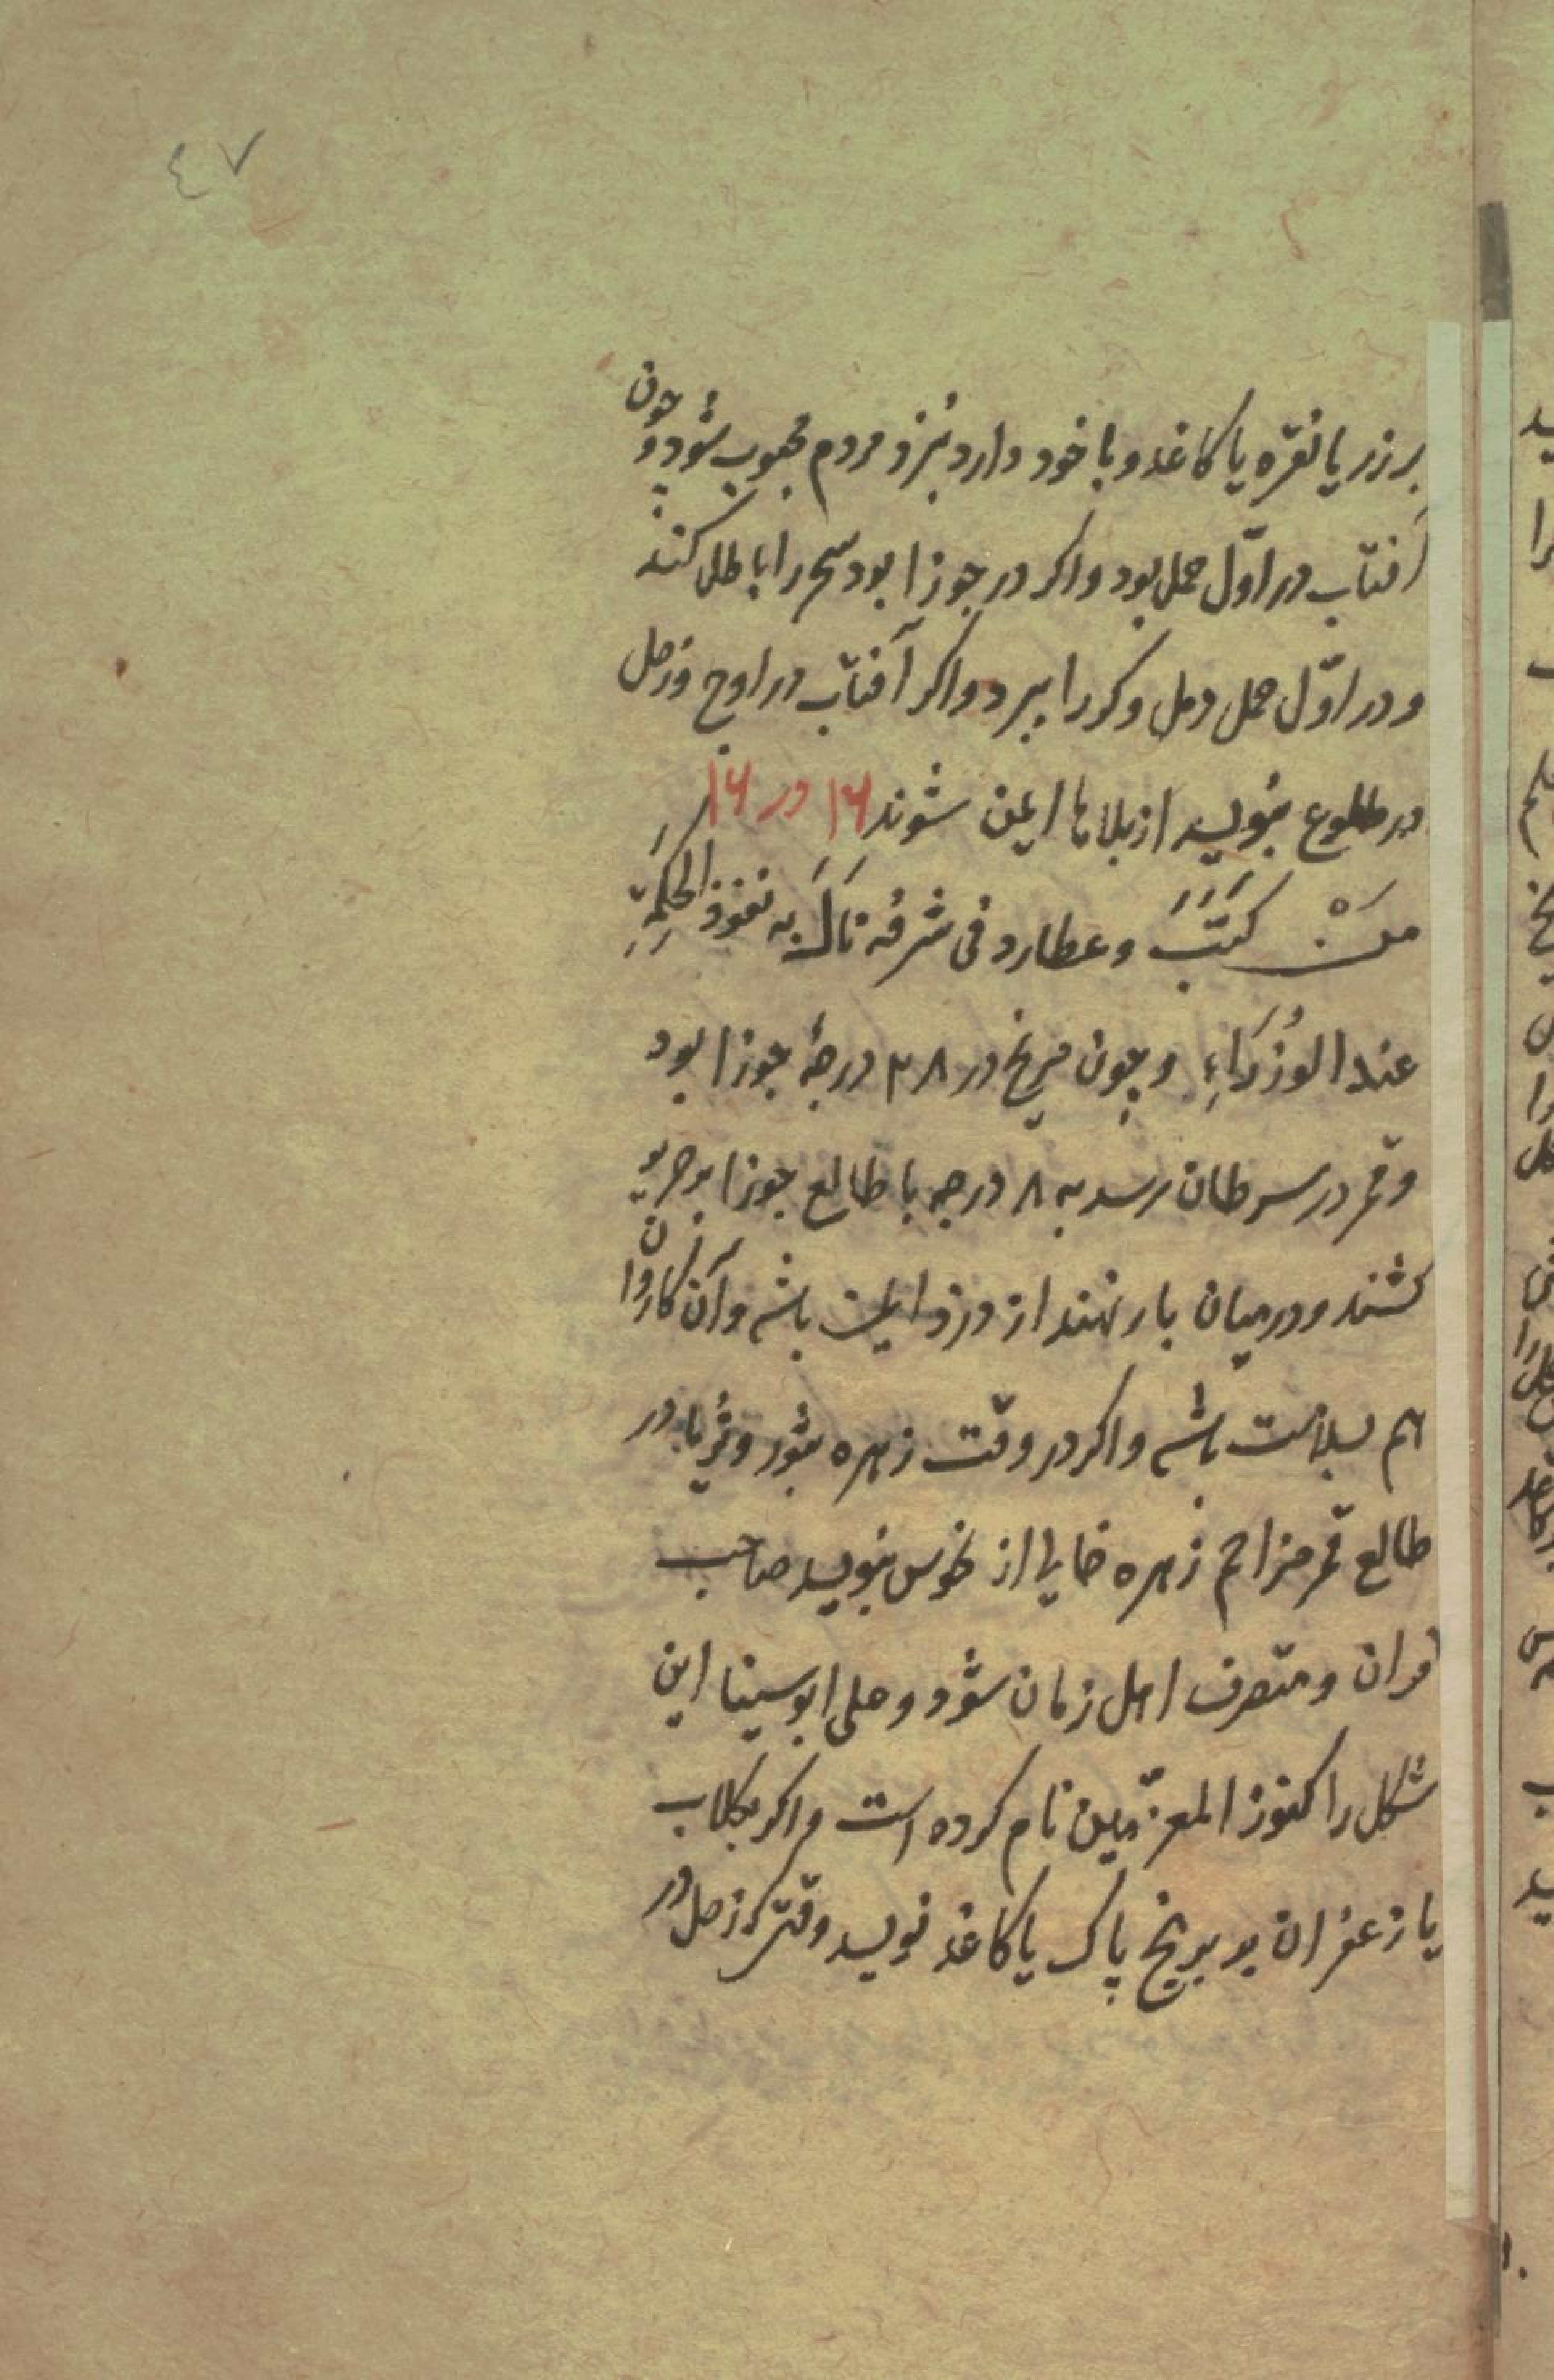 ٤٧
بر زر یا نقره یا کاغذ و با خود دارد نزد مردم محبوب شود و چون
آفتاب در اوّل حمل بود و اکر در جوزا بود سحر را باطل کند
و در اوّل حمل دمل و کور را ببرد و اکر آفتاب در اوج و زحل
در طلوع بنویسد از بلاها ایمن شوند ۱۶ در ۱۶
مَنْ کَتَبَ و عطارد فی شرفه نَالَ به نفوذ الحکمة
عند الوُزَرَاءِ و چون مریخ در ۲۸ درجهٔ جوزا بود
و قمر در سرطان رسد به ۸ درجه با طالع جوزا بر حریر
کشند و در میان بار نهند از دزد ایمن باشد و آن کاروان
هم بسلامت باشد و اکر در وقت زهره بثور و ثریا در
طالع قمر مزاحم زهره خالی از نحوس بنویسد صاحب
قران و متصرف اهل زمان شود و علی ابو سینا این
شکل را کنوز المعزّمین نام کرده است و اکر بکلاب
یا زعفران بر برنج پاک یا کاغذ نویسد وقتی که زحل در